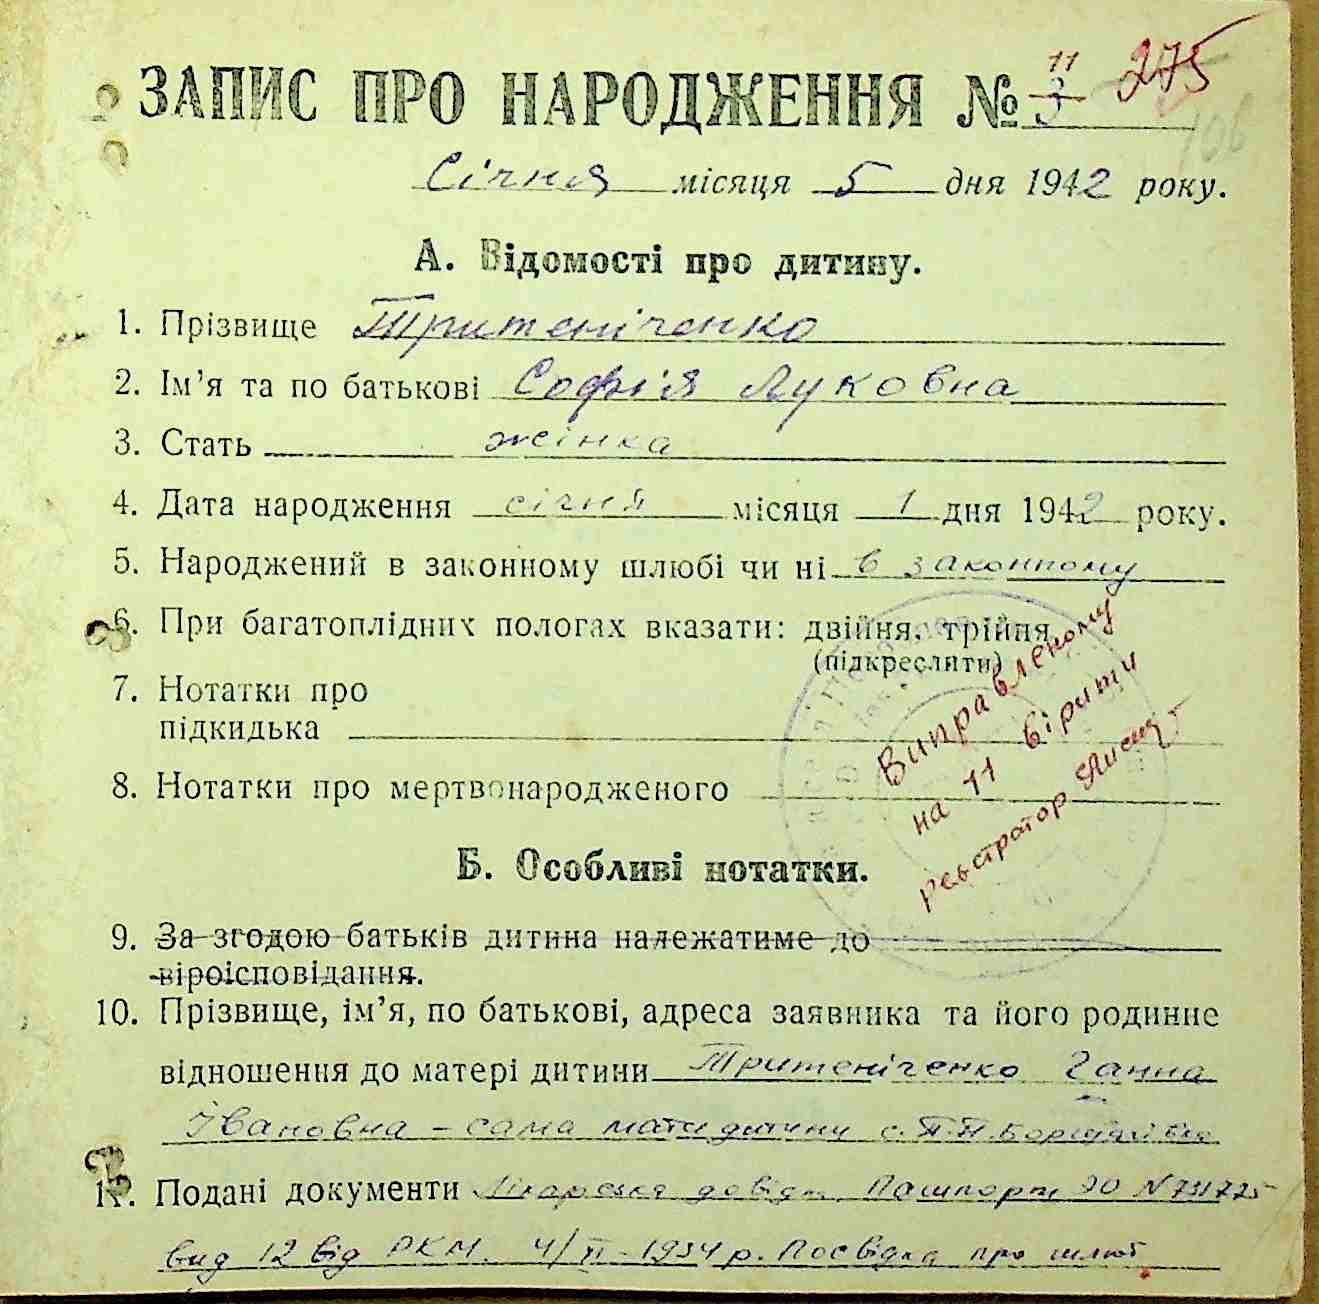 ЗАПИС ПРО НАРОДЖЕННЯ № 3 11 275
106
Січня місяця 5 дня 1942 року.
А. Відомості про дитину.
1. Прізвище Тритеніченко
2. Ім'я та по батькові Софія Луковна
3. Стать жінка
4. Дата народження січня місяця 1 дня 1942 року.
5. Народжений в законному шлюбі чи ні в законному
6. При багатоплідних пологах вказати: двійня, трійня
(підкреслити)
7. Нотатки про
підкидька
8. Нотатки про мертвонародженого
Виправленому
на 11 вірити
реєстратор
Б. Особливі нотатки.
9. За згодою батьків дитина належатиме до
віроісповідання.
10. Прізвище, ім'я, по батькові, адреса заявника та його родинне
відношення до матері дитини Тритеніченко Ганна
Івановна – сама мати дитини с. П. П. Борщагівка
11. Подані документи Лікарська довідк. Пашпорт № 731725
вид 12 від РКМ. 4/XI – 1934 р. Посвідка про шлюб